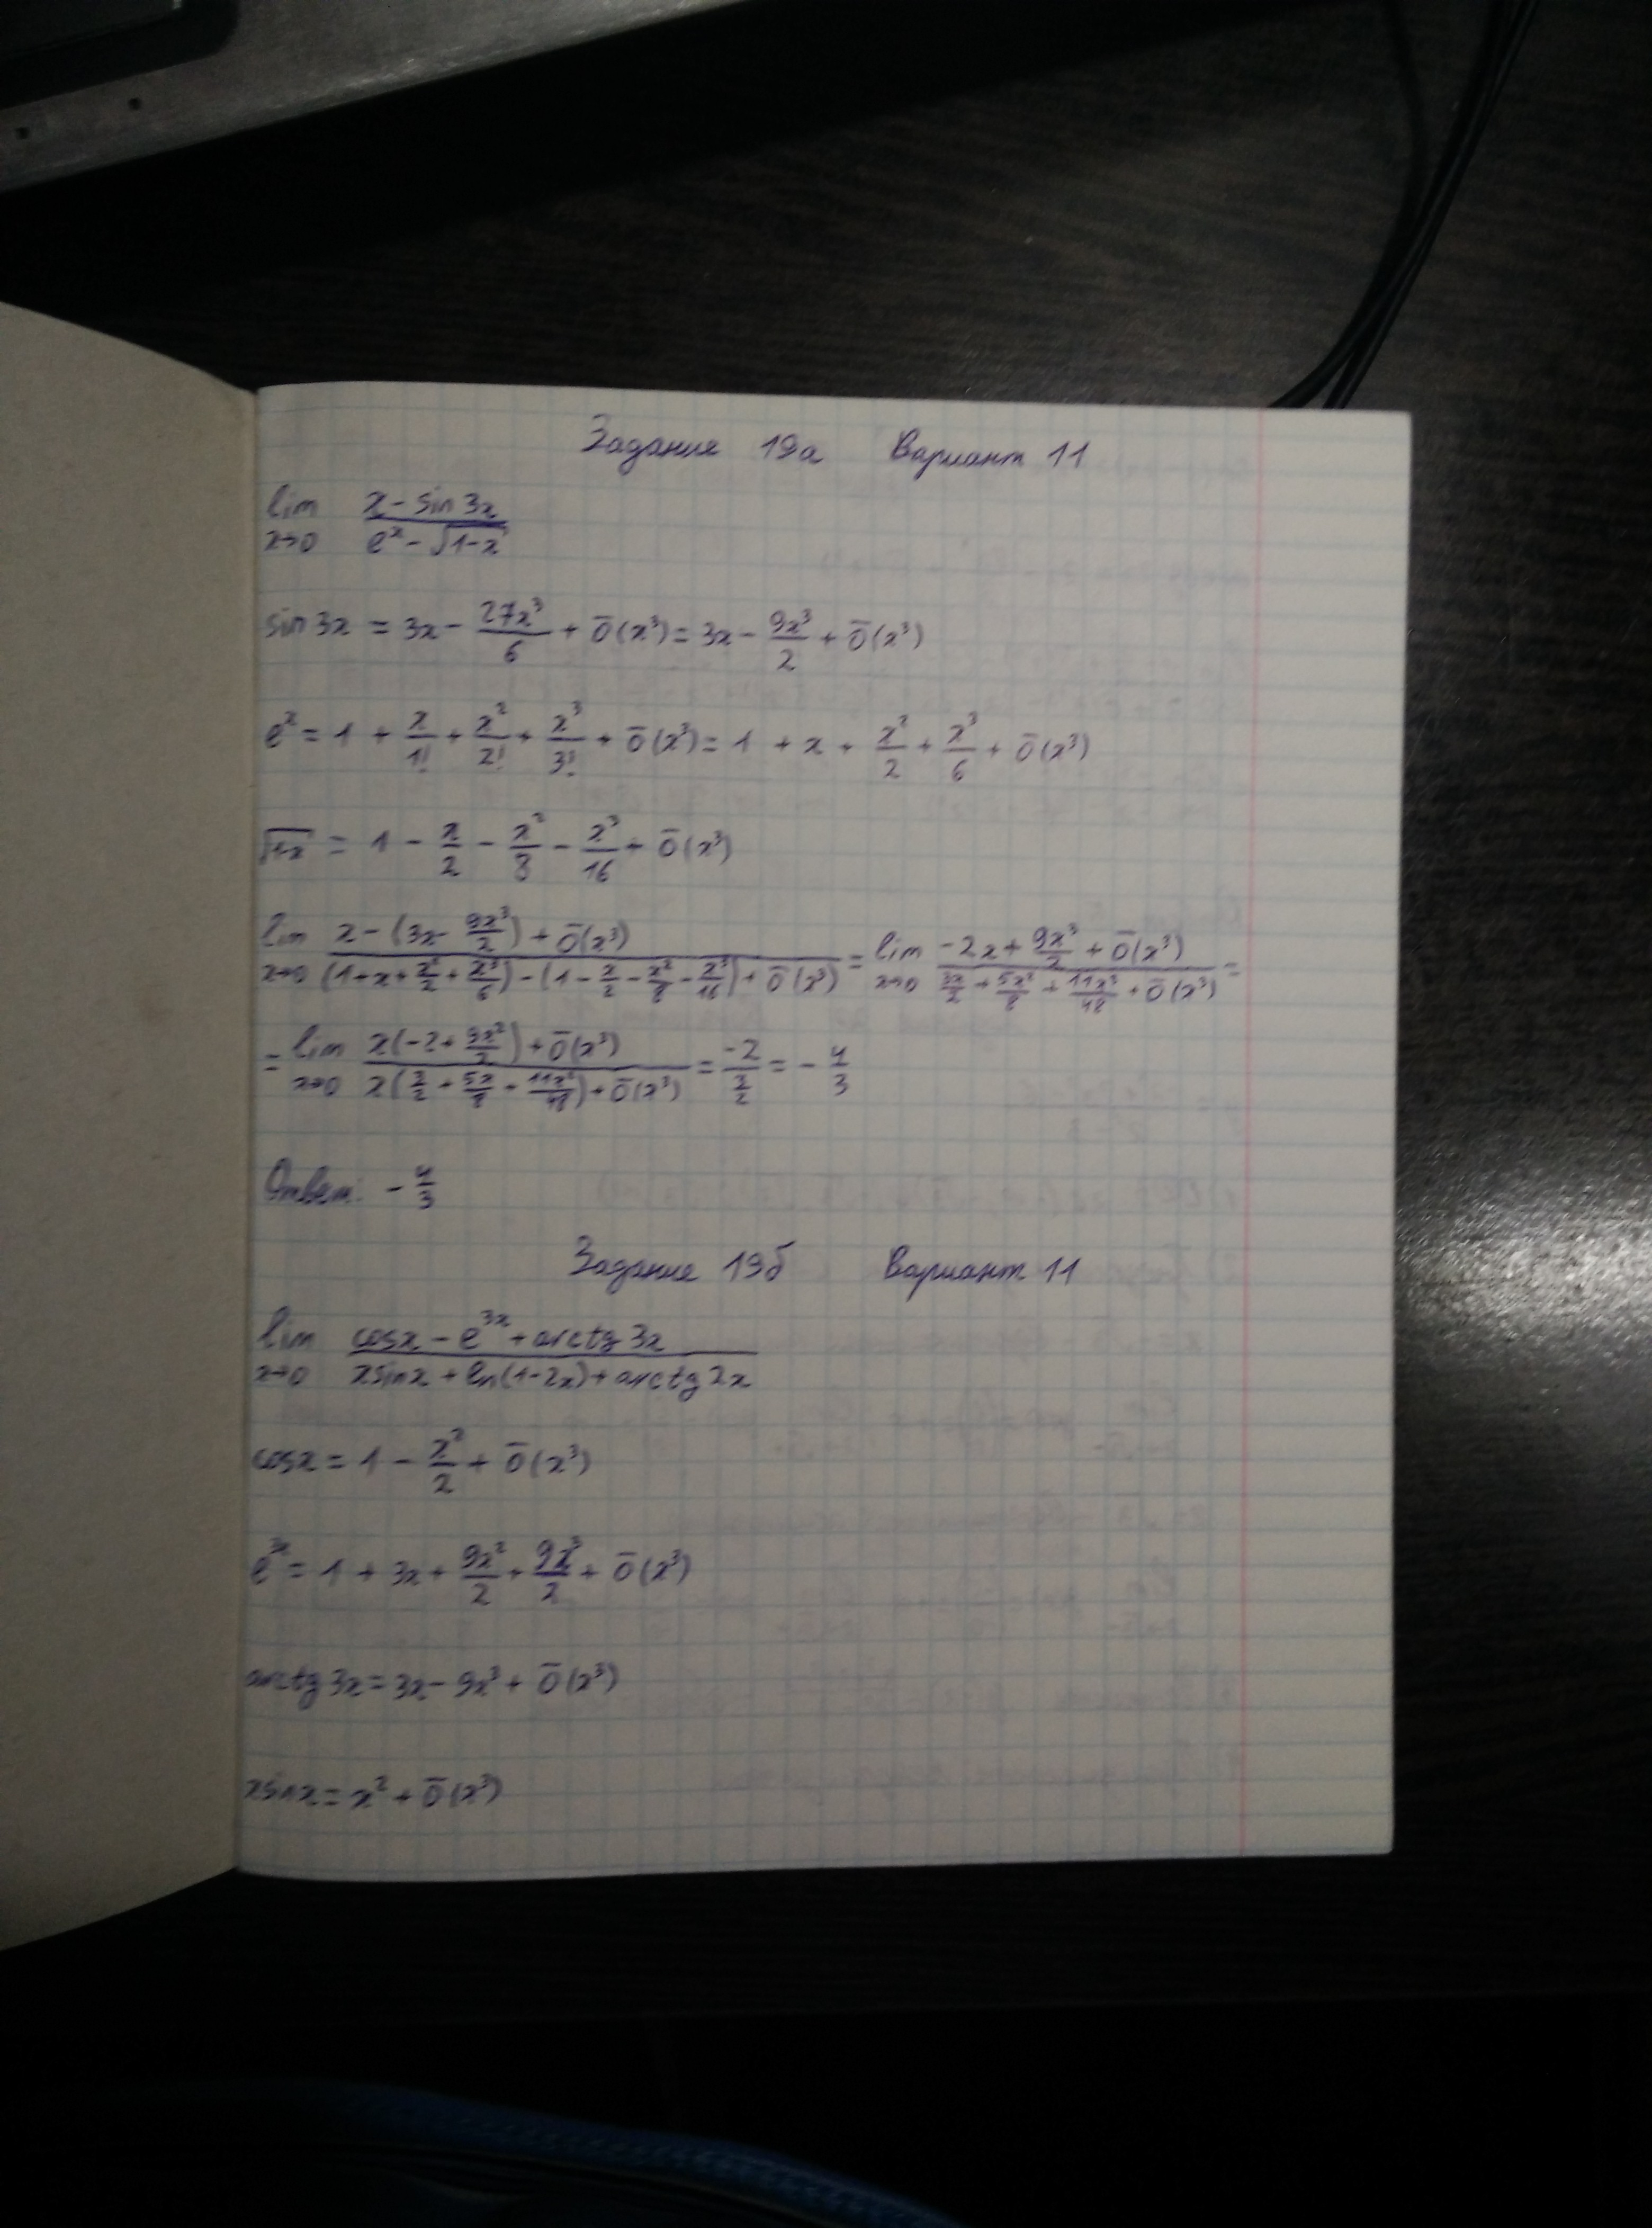 Задание 19а Вариант 11
lim x→0 (x - sin 3x)/(e^x - √(1-x))
sin 3x = 3x - 27x³/6 + ō(x³) = 3x - 9x³/2 + ō(x³)
e^x = 1 + x/1! + x²/2! + x³/3! + ō(x³) = 1 + x + x²/2 + x³/6 + ō(x³)
√(1-x) = 1 - x/2 - x²/8 - x³/16 + ō(x³)
lim x→0 (x - (3x - 9x³/2) + ō(x³))/((1 + x + x²/2 + x³/6) - (1 - x/2 - x²/8 - x³/16) + ō(x³)) = lim x→0 (-2x + 9x³/2 + ō(x³))/(3x/2 + 5x²/8 + 11x³/48 + ō(x³)) =
= lim x→0 (x(-2 + 9x²/2) + ō(x³))/(x(3/2 + 5x/8 + 11x²/48) + ō(x³)) = -2/(3/2) = -4/3
Ответ: -4/3
Задание 19б Вариант 11
lim x→0 (cosx - e^3x + arctg 3x)/(xsinx + ln(1-2x) + arctg 2x)
cosx = 1 - x²/2 + ō(x³)
e^3x = 1 + 3x + 9x²/2 + 9x³/2 + ō(x³)
arctg 3x = 3x - 9x³ + ō(x³)
xsinx = x² + ō(x³)